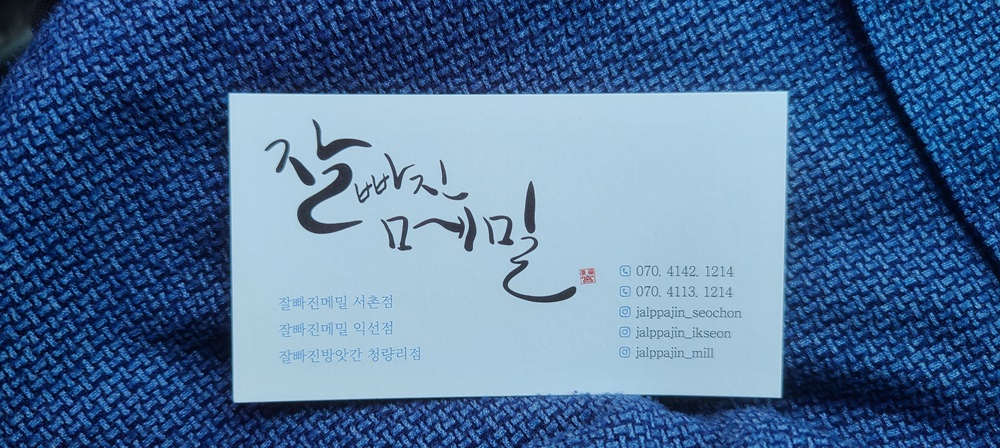 잘빠진
메밀
잘빠진메밀 서촌점
잘빠진메밀 익선점
잘빠진방앗간 청량리점
070. 4142. 1214
070. 4113. 1214
jalppajin_seochon
jalppajin_ikseon
jalppajin_mill